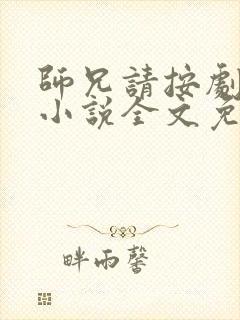 師兄請按劇
小說全文免
畔雨馨